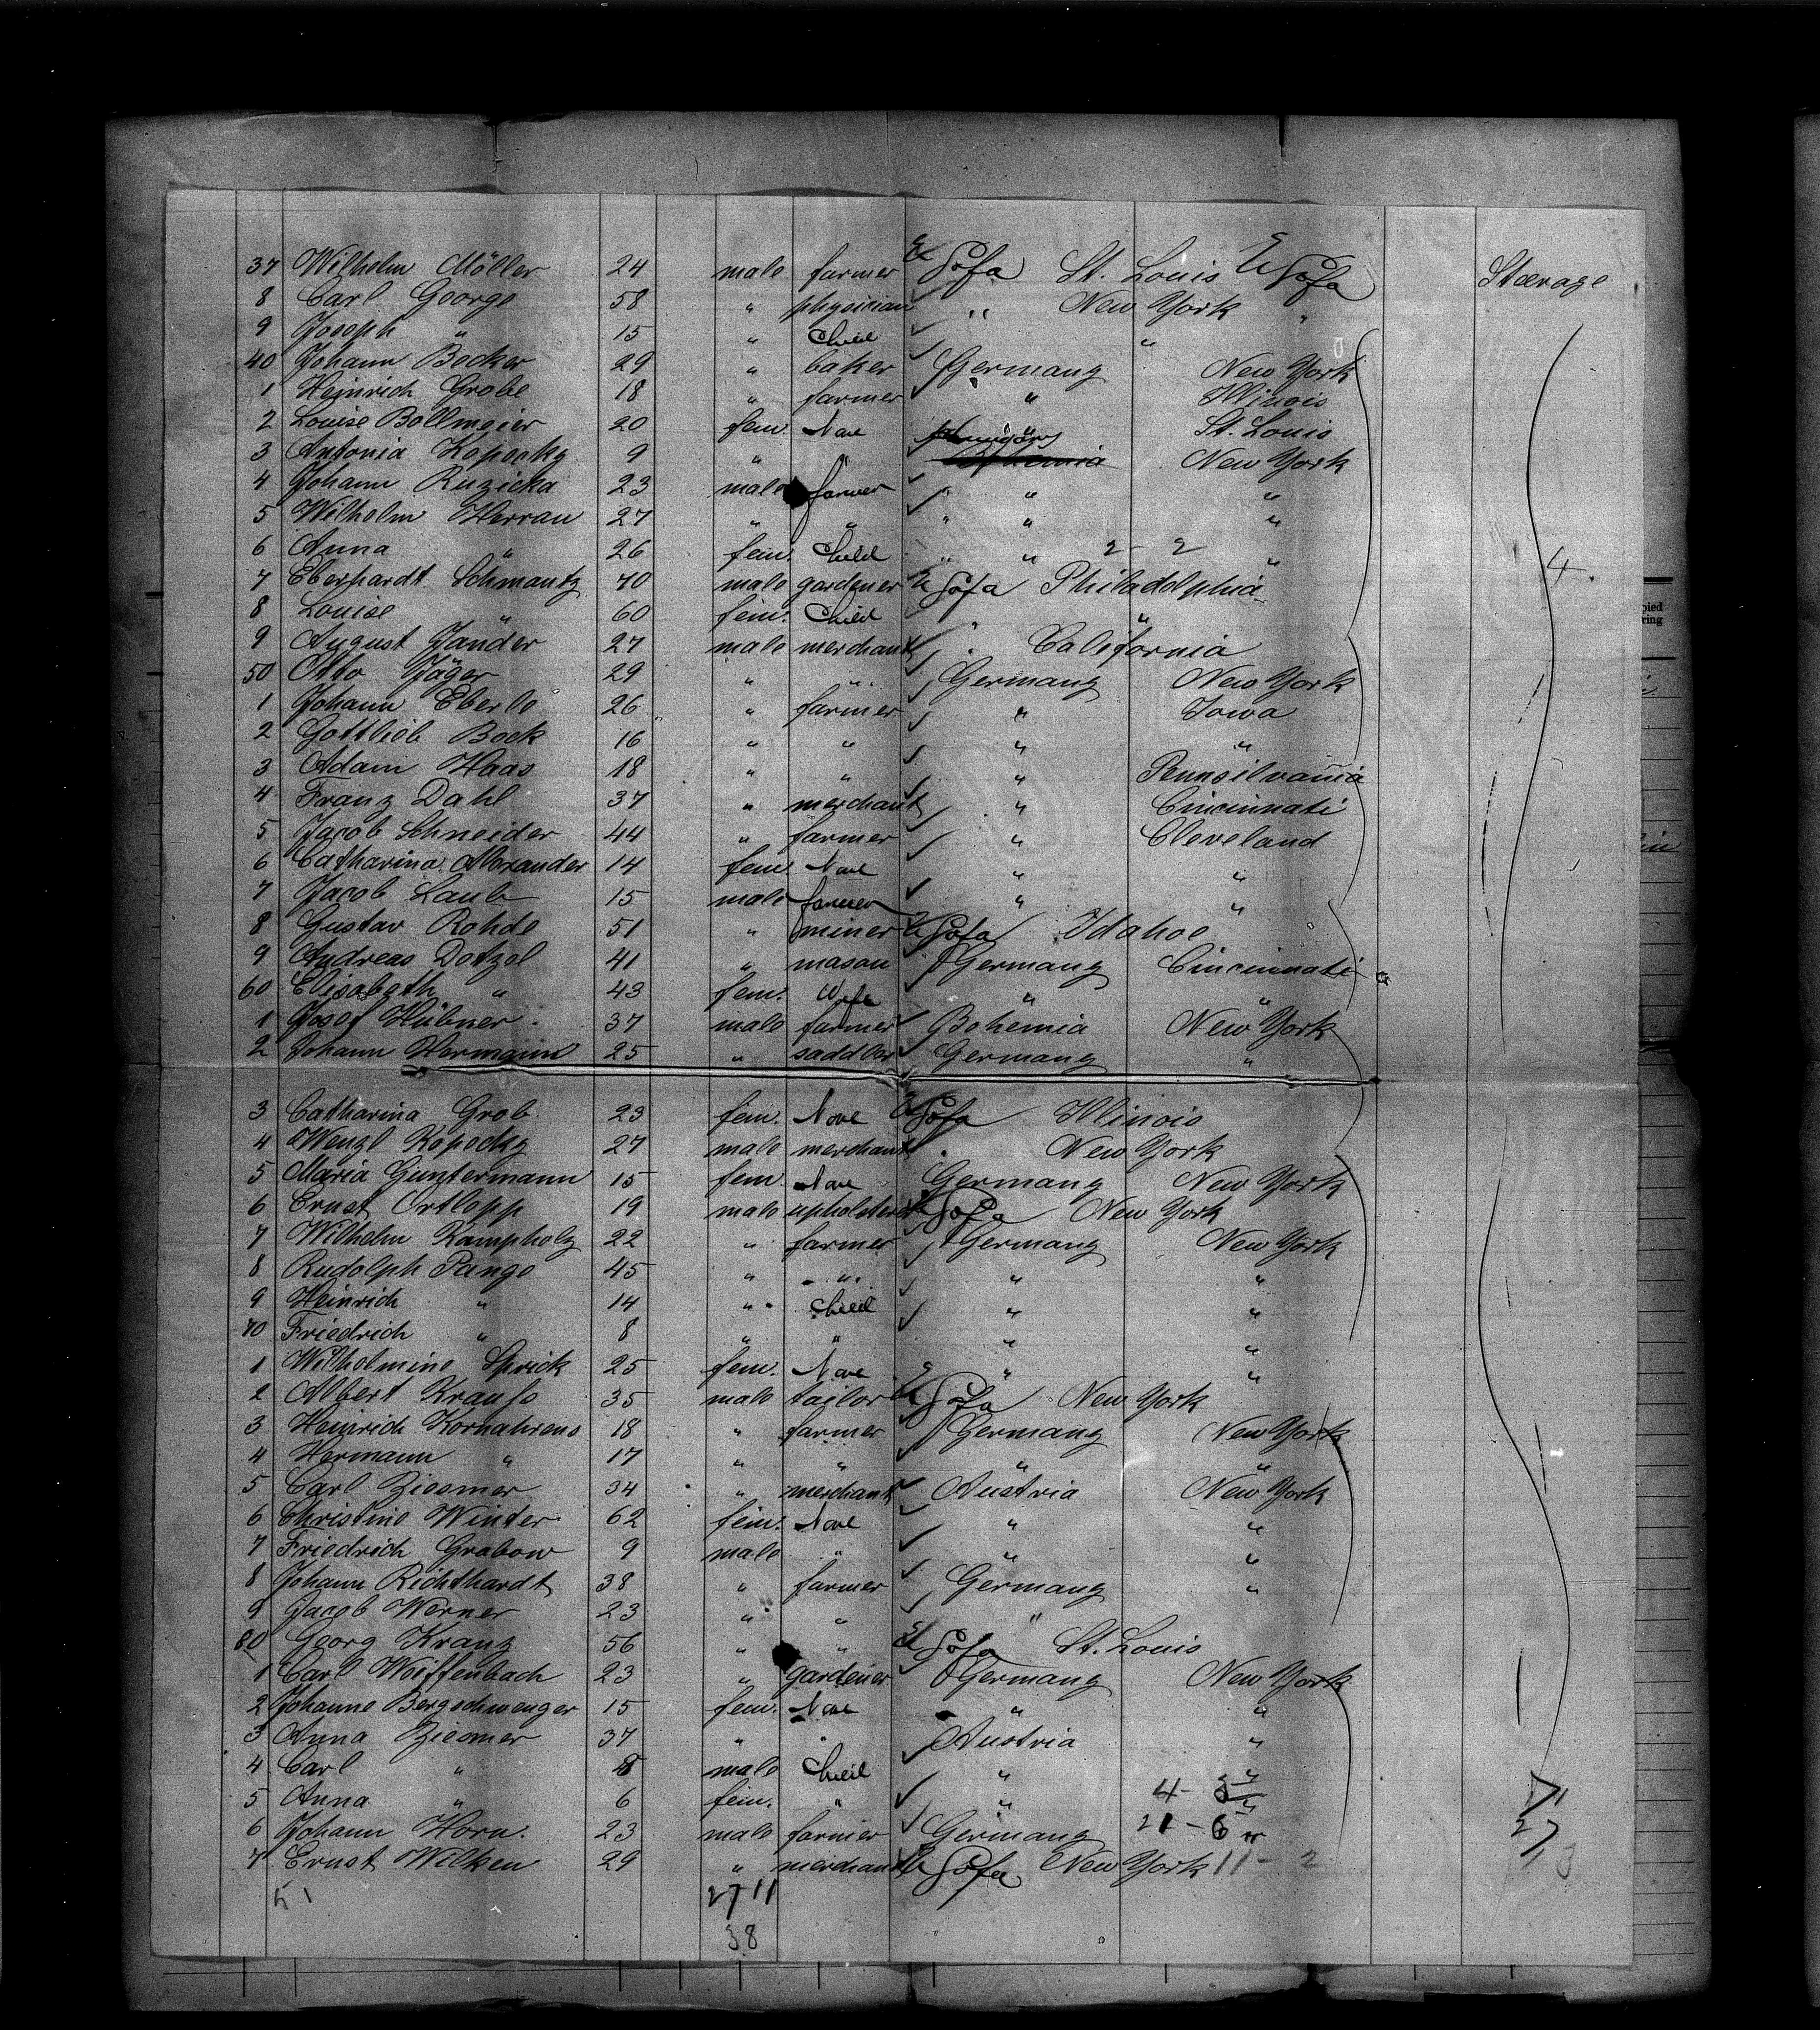 37 Wilhelm Möller 24 male farmer St. Louis Steerage
8 Carl George 58 " physician " New York "
9 Joseph " 15 " Child "
40 Johann Becker 29 " baker Germany New York
1 Heinrich Grobe 18 " farmer " Illinois
2 Louise Bollmeier 20 fem. None " St. Louis
3 Antonia Kopecky 9 " New York
4 Johann Ruzicka 23 male farmer " "
5 Wilhelm Herran 27 " " " "
6 Anna " 26 fem. Child " " 2 - 2 "
7 Eberhardt Schmantz 70 male gardener Philadelphia 4.
8 Louise " 60 fem. Child " "
9 August Jander 27 male merchant " California
50 Otto Jäger 29 " " Germany New York
1 Johann Eberle 26 " farmer " Iowa
2 Gottlieb Bock 16 " " " "
3 Adam Haas 18 " " " Pennsilvania
4 Franz Dahl 37 " merchant " Cincinnati
5 Jacob Schneider 44 " farmer " Cleveland
6 Catharina 14 fem. None " "
7 Jacob Laub 15 male farmer " "
8 Gustav Rohde 51 " miner Idahoe
9 Andreas Dotzel 41 " mason Germany Cincinnati
60 Elisabeth " 43 fem. Wife " "
1 Josef Hübner 37 male farmer Bohemia New York
2 Johann Hermann 25 " saddler Germany "
3 Catharina Grob 23 fem. None Illinois
4 Wenzl Kopecky 27 male merchant " New York
5 Maria Guntermann 15 fem None Germany New York
6 Ernst Ortlepp 19 male upholsterer New York
7 Wilhelm Kampholz 22 " farmer Germany New York
8 Rudolph Pange 45 " " " "
9 Heinrich " 14 " Child " "
70 Friedrich " 8 " " " "
1 Wilhelmine Sprick 25 fem. None " "
2 Albert Krauße 35 male tailor New York
3 Heinrich Kornahrens 18 " farmer Germany New York
4 Hermann " 17 " " " "
5 Carl Ziesmer 34 " merchant Austria New York
6 Christine Winter 62 fem. None " "
7 Friedrich Grabow 9 male " " "
8 Johann Richthardt 38 " farmer Germany "
9 Jacob Werner 23 " " "
80 Georg Kranz 56 " " St. Louis
1 Carl Woiffenbach 23 " gardener Germany New York
2 Johanne Bergschwenger 15 fem. None " "
3 Anna Ziesmer 37 " " Austria "
4 Carl " 8 male Child " "
5 Anna " 6 fem. " "
6 Johann Horn. 23 male farmer Germany
7 Ernst Wilken 29 " merchant New York 11 - 2
27 11
38